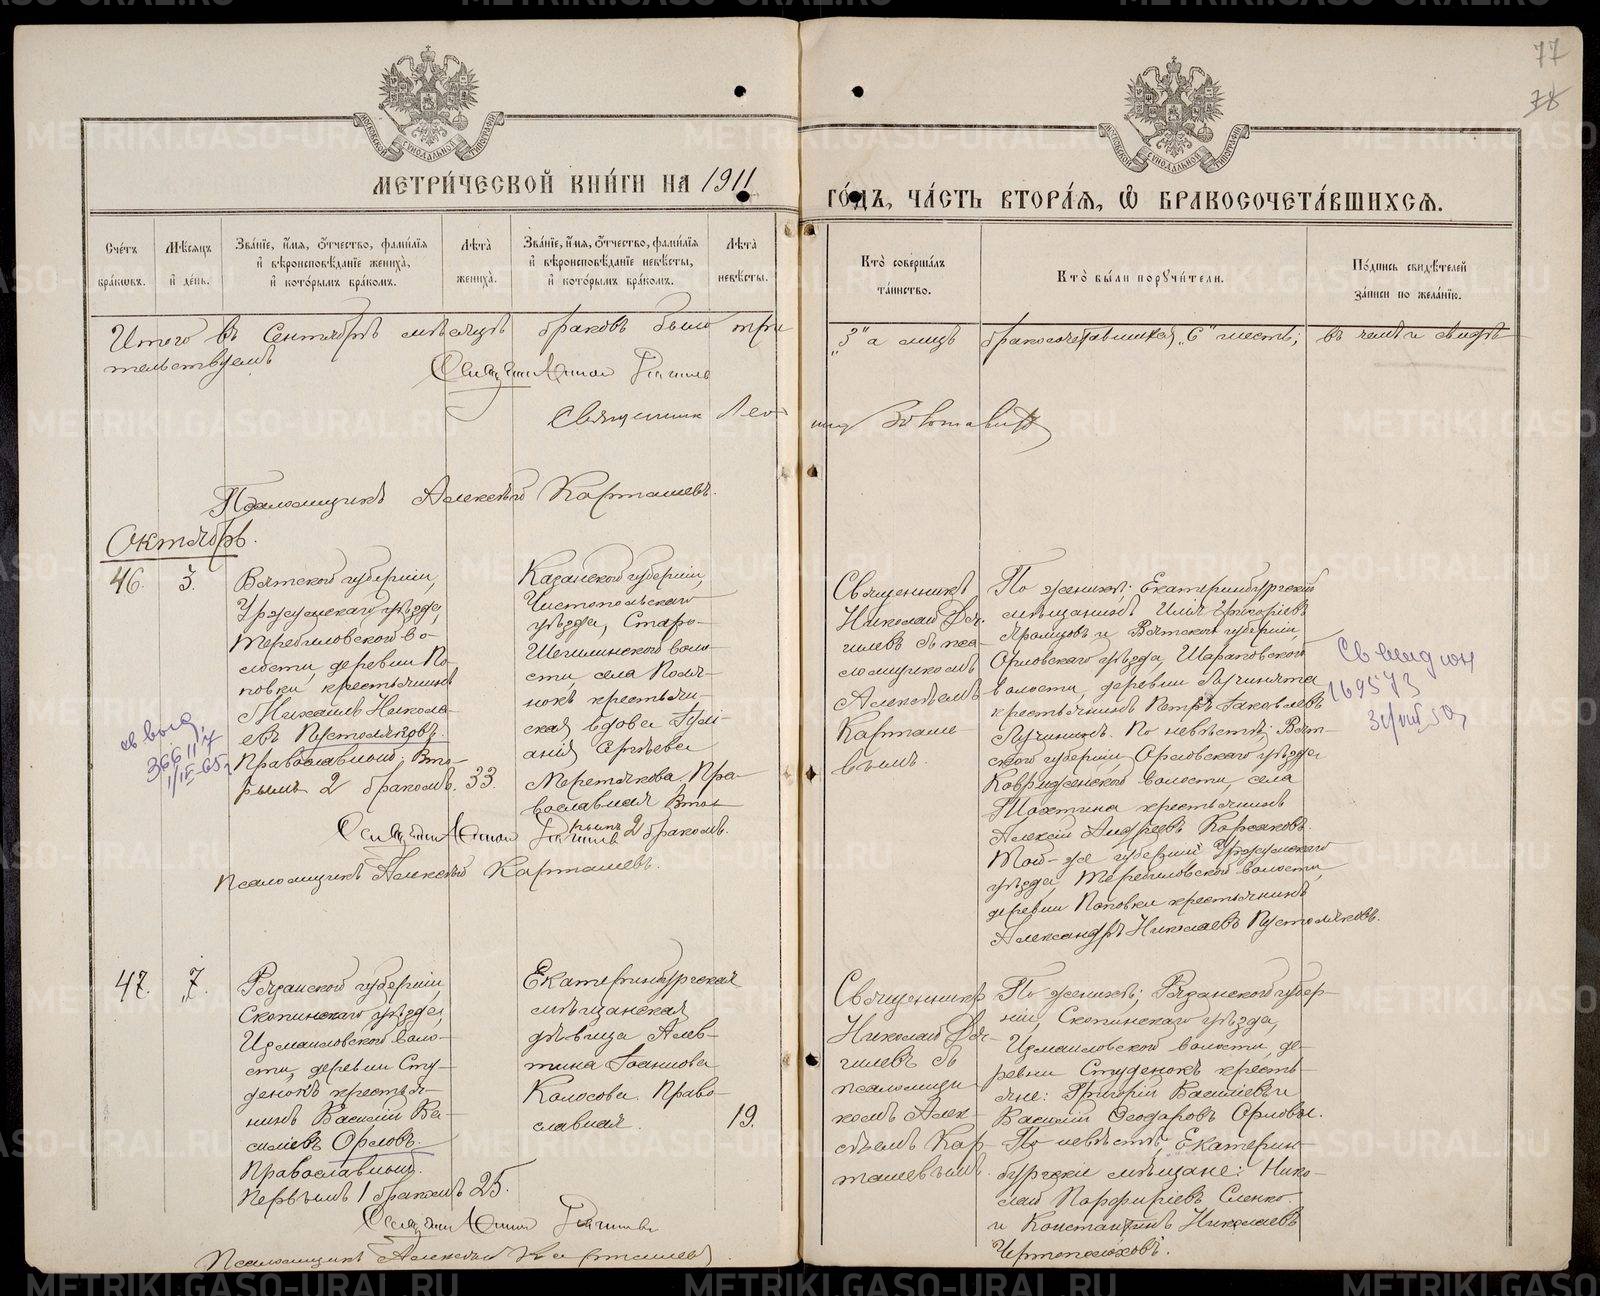 77
78
МОСКОВСКОЙ СѴНОДАЛЬНОЙ ТИПОГРАФІИ
МОСКОВСКОЙ СѴНОДАЛЬНОЙ ТИПОГРАФІИ
МЕТРИ́ЧЕСКОЙ КНИ́ГИ НА 1911
ГО́ДЪ, ЧА́СТЬ ВТОРА́Я, Ѽ БРАКОСОЧЕТА́ВШИХСЯ.
Сче́тъ бра́кѡвъ.
Мѣ́сяцъ и҆ де́нь.
Зва́нїе, и҆́мя, ѻ҆́тчество, фами́лїя и҆ вѣроисповѣ́данїе жениха̀, и҆ кото́рымъ бра́комъ.
Лѣ́та жениха̀.
Зва́нїе, и҆́мя, ѻ҆́тчество, фами́лїя и҆ вѣроисповѣ́данїе невѣ́сты, и҆ кото́рымъ бра́комъ.
Лѣ́та невѣ́сты.
Кто̀ соверша́лъ та́инство.
Кто̀ бы́ли поручи́тели.
По́дпись свидѣ́телей за́писи по жела́нїю.
Итого въ Сентябрѣ мѣсяцѣ браковъ было три „3“ а лицъ бракосочетавшихся „6“ шесть; въ чемъ и свидѣ
тельствуемъ
Священник Леонид
Псаломщикъ Алексѣй Карташевъ.
Октябрь.
46.
3.
Вятской губерніи,
Уржумскаго уѣзда,
Теребиловской во-
лости, деревни По
повки крестьянинъ
Михаилъ Никола-
евъ Пустоляковъ.
Православный. Вто-
рымъ 2 бракомъ.
33.
Казанской губерніи,
Чистопольскаго
уѣзда, Старо-
Шешминской воло-
сти, села Поля-
нокъ крестьян-
ская вдова Іулі-
анія Сергѣева
Меретякова. Пра-
вославная. Вто-
рымъ 2 бракомъ.
Псаломщикъ Алексѣй Карташевъ.
Священникъ
Николай Дя-
гилевъ съ пса
ломщикомъ
Алексѣемъ
Карташе-
вымъ.
По женихѣ; Екатеринбургскій
мѣщанинъ Илія Григоріевъ
и Вятской губерніи,
Орловскаго уѣзда, Шараповской
волости, деревни Лучинята
крестьянинъ Петръ Іаковлевъ
Лучининъ. По невѣстѣ; Вят-
ской губерніи, Орловскаго уѣзда
Ковриженской волости, села
Шахтина крестьянинъ
Алексій Андреевъ Корсаковъ.
Той-же губерніи Уржумскаго
уѣзда, Теребиловской волости,
деревни Поповки крестьянинъ
Александръ Николаевъ Пустоляковъ.
169573
47.
7.
Рязанской губерніи
Скопинскаго уѣзда,
Измаиловской воло-
сти, деревни Сту-
денокъ крестья-
нинъ Василій Ва-
силіевъ Орловъ.
Православный.
Первымъ 1 бракомъ
25.
Екатеринбургская
мѣщанская
дѣвица Алев-
тина Іоаннова
Колосова. Право-
славная.
19.
Псаломщикъ Алексѣй Карташевъ.
Священникъ
Николай Дя-
гилевъ съ
псаломщи-
комъ Алек-
сѣемъ Кар-
ташевымъ.
По женихѣ; Рязанской губер-
ніи, Скопинскаго уѣзда,
Измаиловской волости, де-
ревни Студенокъ кресть-
яне: Григорій Василіевъ и
Василій Ѳеодоровъ Орловы.
По невѣстѣ; Екатерин-
бургскіе мѣщане: Нико-
лай Порфиріевъ Сленко.
и Константинъ Николаевъ
Чертополоховъ.
METRIKI.GASO-URAL.RU